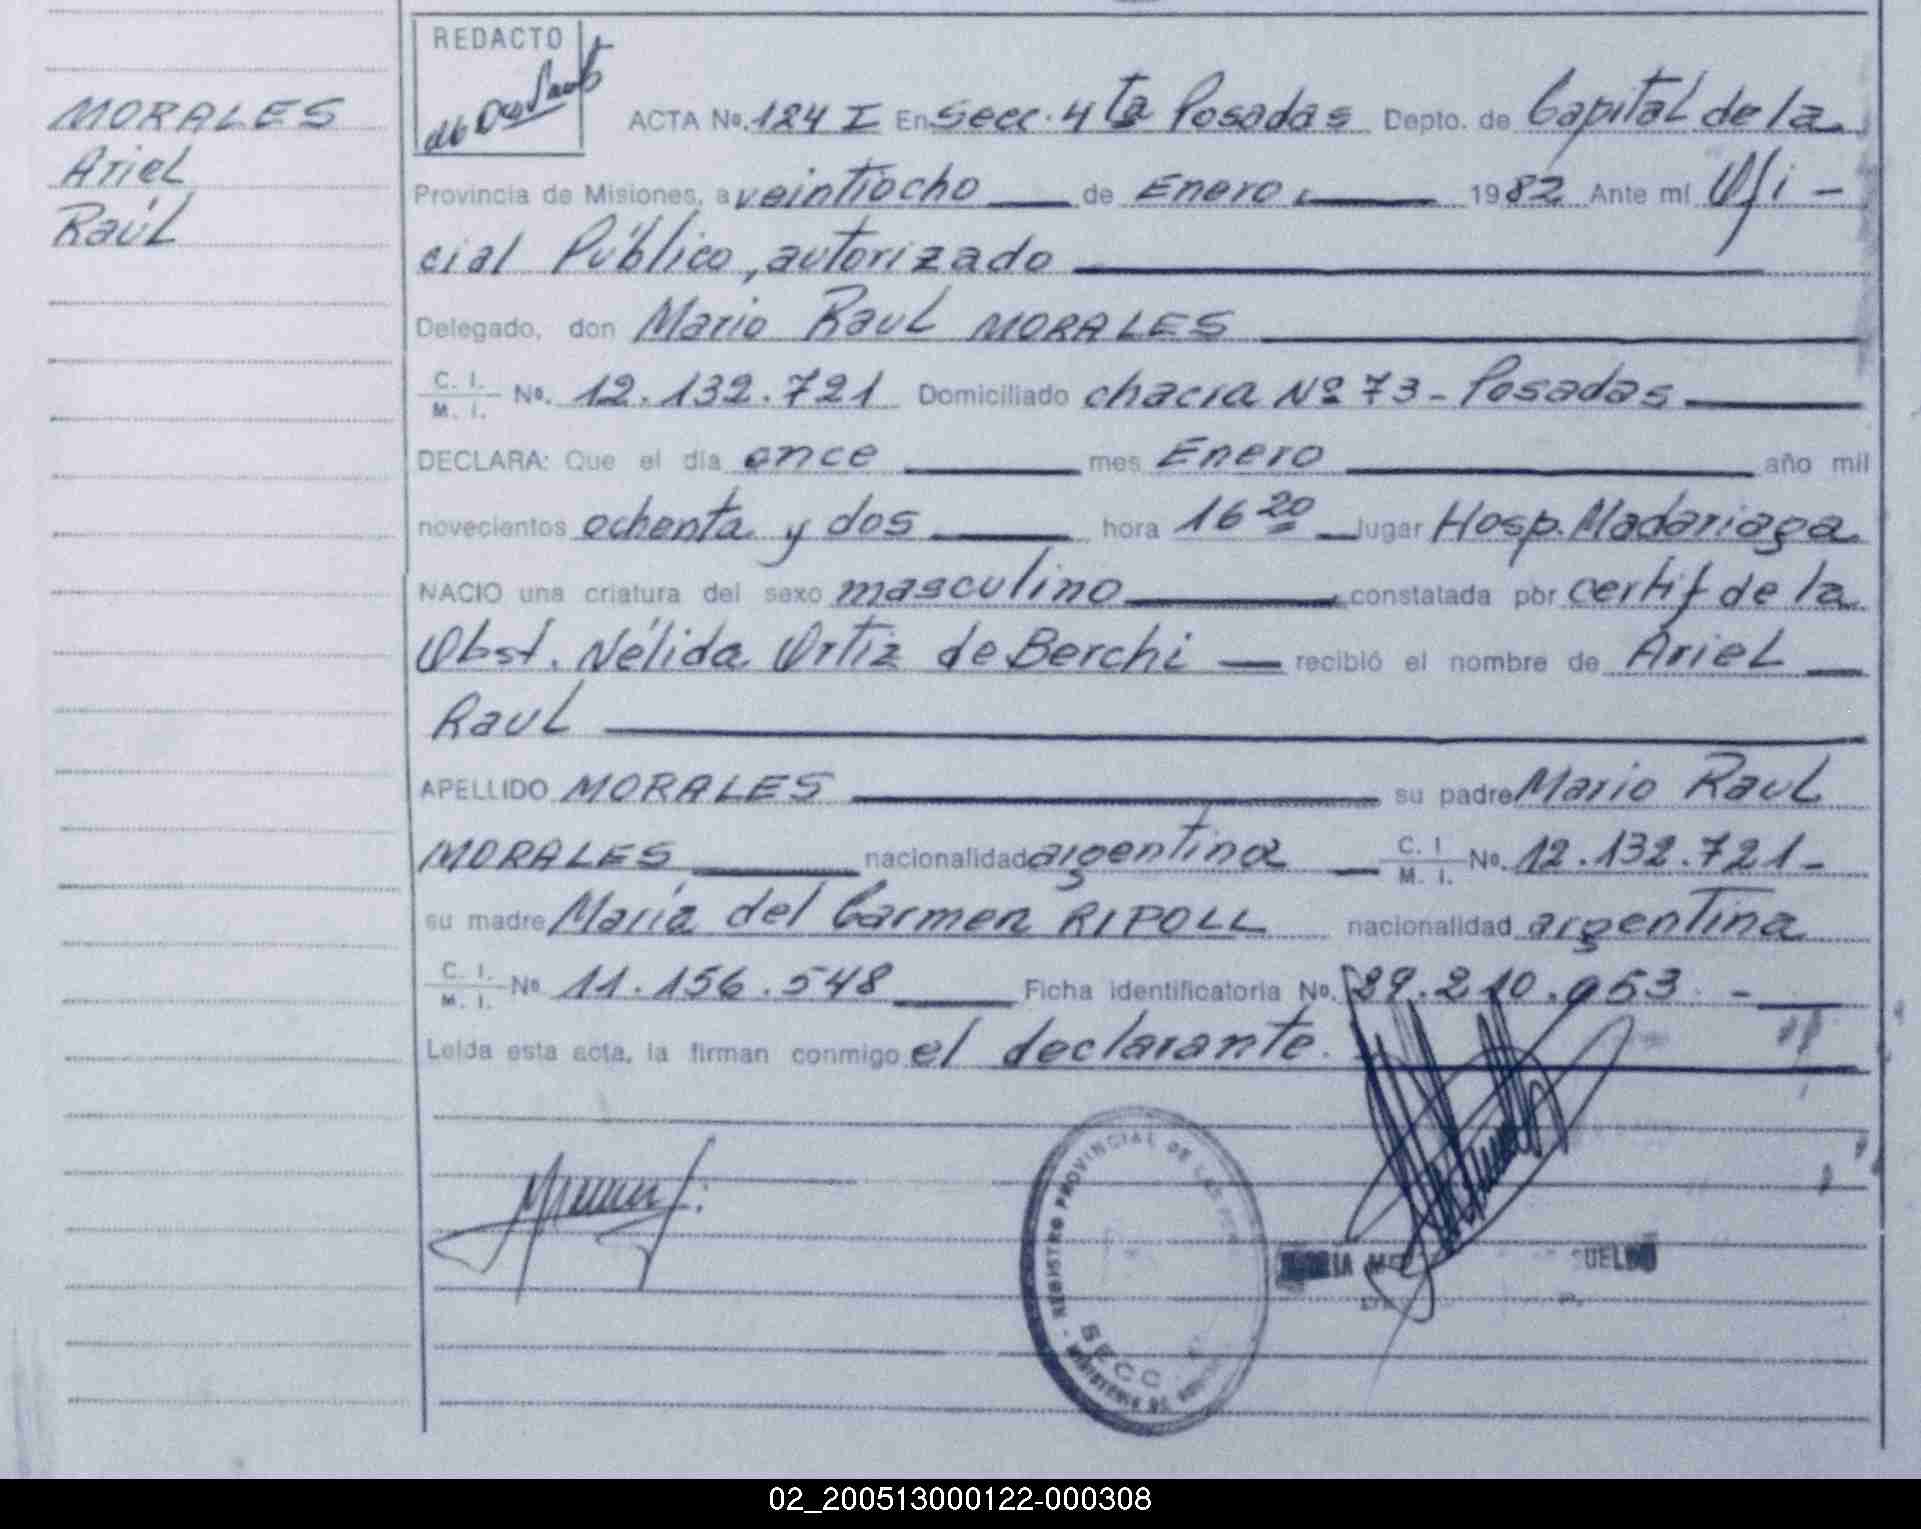 REDACTO
MORALES
Ariel
Raúl
ACTA No. 124 I En Secc. 4ta Posadas Depto. de Capital de la
Provincia de Misiones, a veintiocho de Enero 1982 Ante mí Ofi-
cial Público, autorizado
Delegado, don Mario Raul MORALES
C. I. M. I. No. 12.132.721 Domiciliado chacra Nº 73 - Posadas
DECLARA: Que el día once mes Enero año mil
novecientos ochenta y dos hora 16 20 lugar Hosp. Madariaga
NACIO una criatura del sexo masculino constatada por certif de la
Obst. Nélida Ortiz de Berchi recibió el nombre de Ariel
Raul
APELLIDO MORALES su padre Mario Raul
MORALES nacionalidad argentina C. I M. I. No. 12.132.721-
su madre María del Carmen RIPOLL nacionalidad argentina
C. I. M. I. No 11.156.548 Ficha identificatoria No. 29.210.053 -
Leída esta acta, la firman conmigo el declarante.
REGISTRO PROVINCIAL DE LAS PER
SECC
02_200513000122-000308